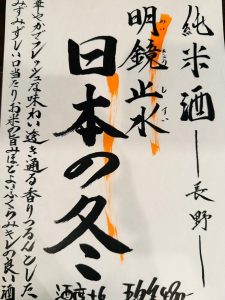 純米酒 ―長野―
明鏡止水
めいきょうしすい
日本の冬
華やかでフレッシュな味わい透き通る香りつるんとした
みずみずしい口当たりお米の旨みほどよいふくらみキレの良い酒
酒度+6